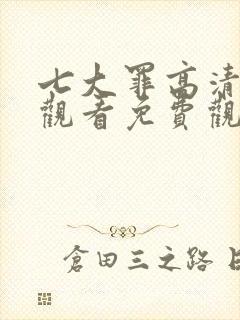 七大罪高清
觀看免費觀
倉田三之路